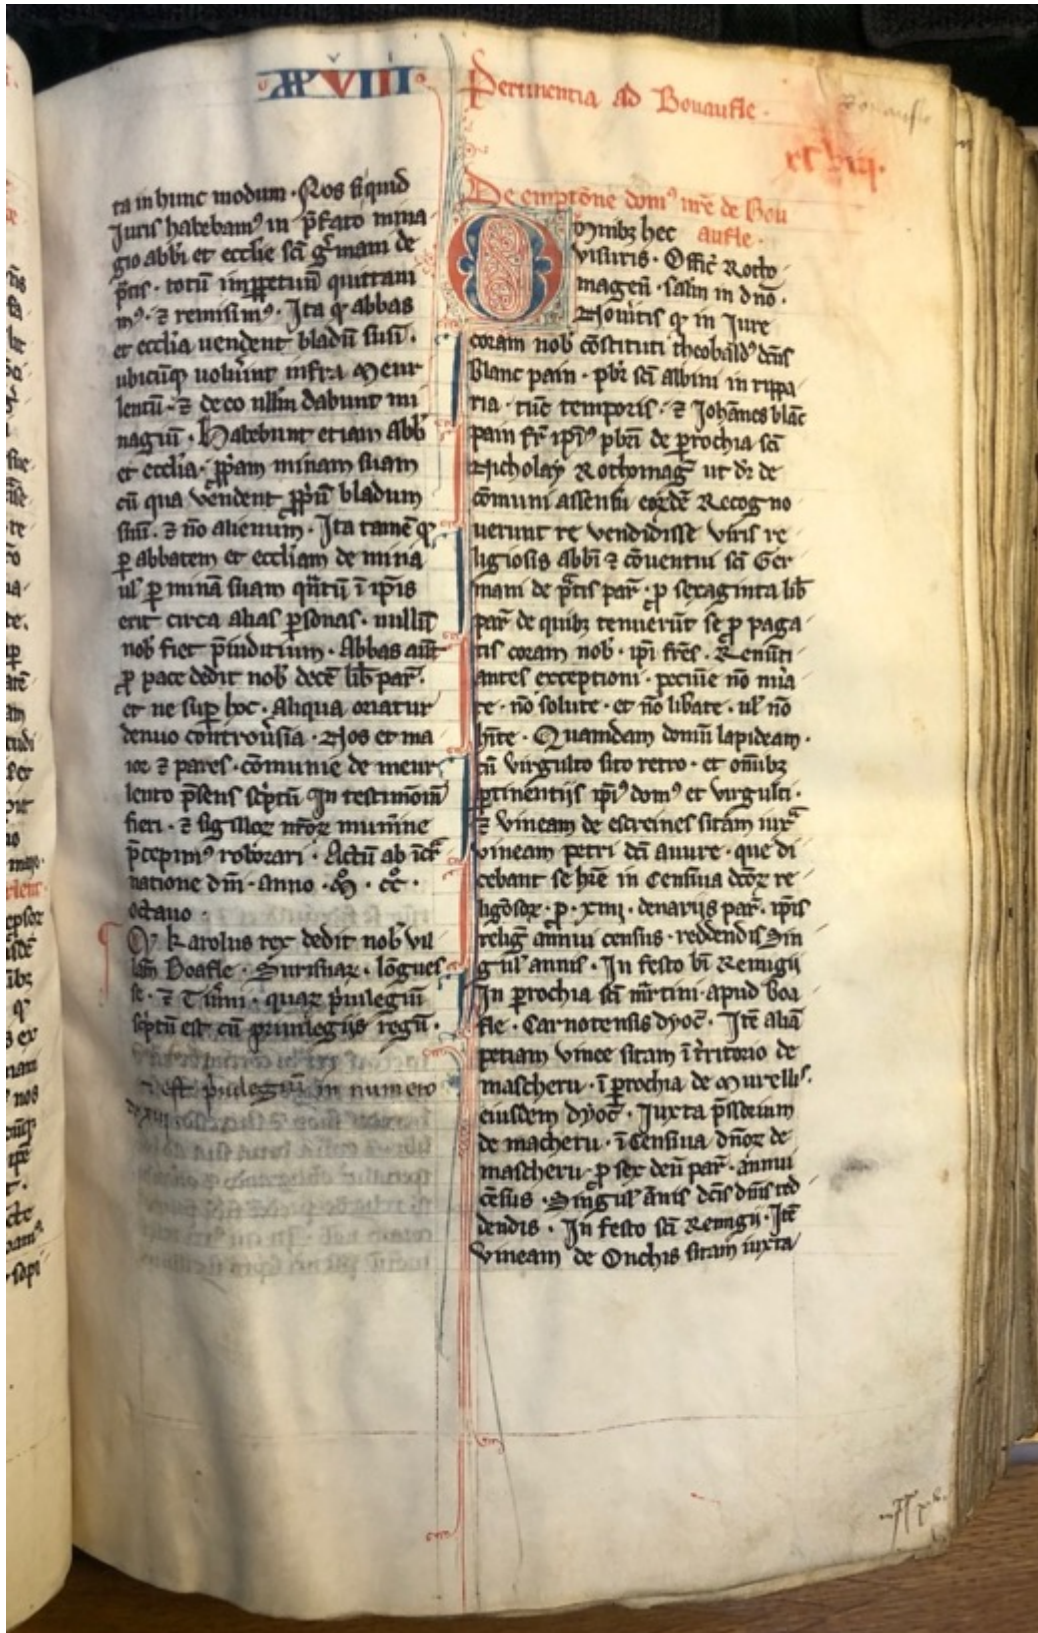 XVIII
Pertinentia ad Bouaufle.
Bouaufle
ta in hunc modum. Nos siquid
Iuris habebam᾿ in p̄fato mina
gio abbi et ecclie sc̄i g̃mani de
p̃tis. totū inp̱petuū quittam
m᾿. ⁊ remisim᾿. Ita ꝙ abbas
et ecclia uendent bladū suū.
ubicūq uolu̾int infra Meur
lentū. ⁊ de eo nllm̄ dabunt mi
nagiū. Habebunt etiam abb̄
et ecclia. ꝓp̱am minam suam
cū qua vendent ꝓpⁱū bladum
suū. ⁊ nō alienum. Ita tamē ꝙ
ꝑ abbatem et eccliam de mina
ul᾿ ꝑ minā suam qn̄tū ī ip̄is
erit circa alias ꝑsonas. nullū
nob̄ fiet p̄iuditium. Abbas aūt
ꝓ pace dedit nob̄ decē lib̄ par̄.
et ne suꝑ hoc. aliqua oriatur
denuo contro᷑u̾sia. Nos et ma
ior ⁊ pares. cōmunie de meur
lento p̄sens sc̾ptū In testimoniū
fieri. ⁊ sigilloꝝ nr̄oꝝ munīne
p̄cepim᾿ roborari. Actū ab īcar
natione dn̄i. anno. M̊. cc̊.
octauo.
Q᾿ karolus rex dedit nob̄ vil
lam Boafle. Surisnaꝝ. lōgues
se. ⁊ Tu̾ni. quaꝝ p̾uilegiū
sc̾ptū est cū priuilegijs regū.
est p̾uilegiū in numero
De emptōne dom᾿ nr̄e de Bou
aufle.
Omnibꝫ hec
visuris. Offic̄ Rotho
magen̄. salm̄ in dn̄o.
Nou̾itis ꝙ in Iure
coram nob̄ cōstituti theobald᾿ dc̄us
Blanc pain. pbr̄ sc̄i albini in rippa
ria. tūc temporis. ⁊ Johānes blāc
pain fr̄ ip̄i᾿ pbr̄i de ꝑrochia sc̄i
Nicholay Rothomag̃ ut dr̄ de
cōmuni assensu eorꝱdē Recogno
uerunt se vendidisse viris re
ligiosis abbī ⁊ cōuentui sc̄i Ger
mani de p̃tis par̄. ꝓ sexaginta lib̄
par̄ de quibꝫ tenuerūt se ꝓ paga
tis coram nob̄. ip̄i frēs. Renūti
antes exceptioni. peccunie nō nūa
te. nō solute. et nō lib̾ate. ul᾿ nō
hīte. Quamdam domū lapideam.
cū virgulto sito retro. et omībꝫ
ꝑtinentijs ip̄i᾿ dom᾿ et virgulti.
⁊ vineam de escreines sitam iuxᵃ
vineam petri dc̄i auure. que di
cebant se hr̄e in Censiua dc̄oꝝ re
ligōsoꝝ. ꝓ. xiiij. denarijs par̄. ip̄is
relig̃ annui census. reddendis Sin
gul᾿ annis. In festo bī Remigij
In ꝑrochia sc̄i mr̄tini. apud boa
fle. Carnotensis dyoc̄. Itē aliā
petiam vinee sitam ī t̾ritorio de
mascheru. ī ꝑrochia de Murell᾿.
eiusdem dyoc̄. Iuxta p̄ssorium
de macheru. ī Censiua dn̄oꝝ de
mascheru. ꝓ sex den̄ par̄. annui
cēsus. Singul᾿ ānis dc̄is dn̄is red
dendis. In festo sc̄i Remigij. Itē
vineam de Onchis sitam iuxta